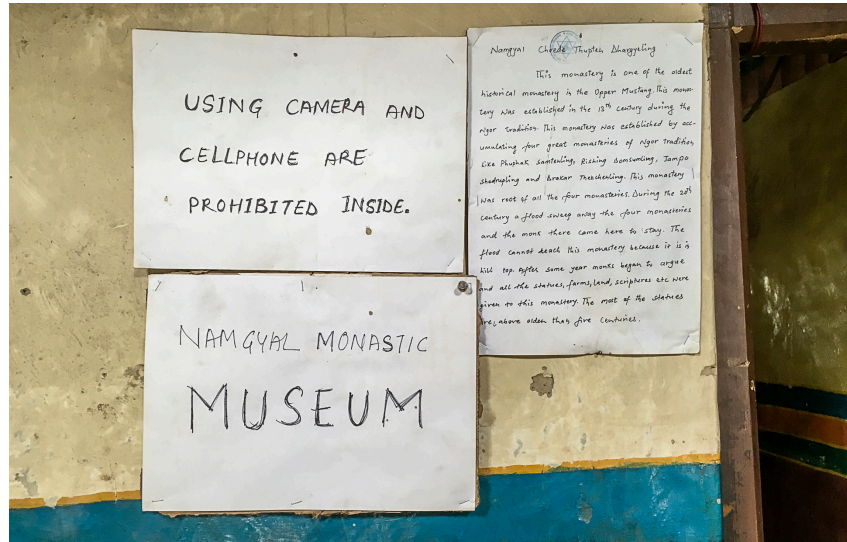 USING CAMERA AND
CELLPHONE ARE
PROHIBITED INSIDE.
NAMGYAL MONASTIC
MUSEUM
Namgyal Chrede Thupten Dhargyeling
This monastery is one of the oldest
historical monastery in the Upper Mustang. This mona-
tery was established in the 13th century during the
Ngor tradition. This monastery was established by acc-
umulating four great monasteries of Ngor Tradition
Like Phushak Samtenling, Rishing Domsumling, Tampo
Shedrupling and Drakar Thekchenling. This monastery
was root of all the four monasteries. During the 20th
century a flood sweep away the four monasteries
and the monk there came here to stay. The
flood cannot reach this monastery because it is in
hill top. After some year monks began to argue
and all the statues, farms, land, scriptures etc were
given to this monastery. The most of the statues
are, above older than five centuries.